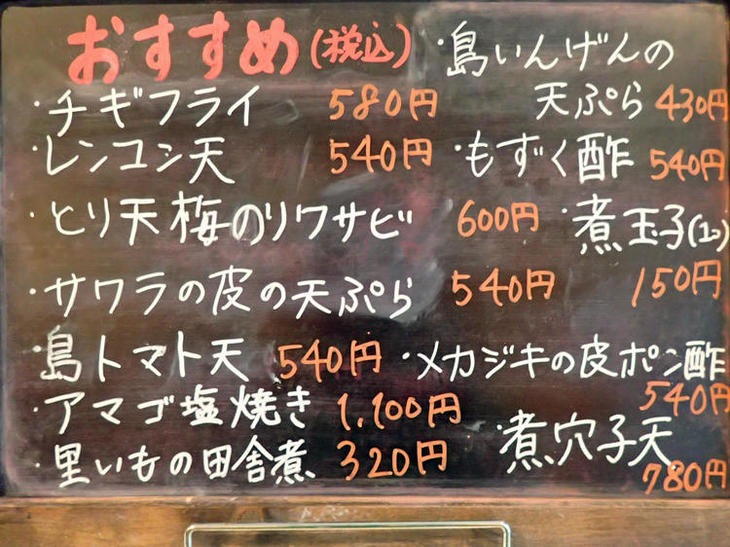 おすすめ(税込)
・チギフライ 580円
・レンコン天 540円
・とり天梅のりワサビ 600円
・サワラの皮の天ぷら 540円
・島トマト天 540円
・アマゴ塩焼き 1,100円
・里いもの田舎煮 320円
・島いんげんの
天ぷら 430円
・もずく酢 540円
・煮玉子(1コ)
150円
・メカジキの皮ポン酢
540円
・煮穴子天
780円